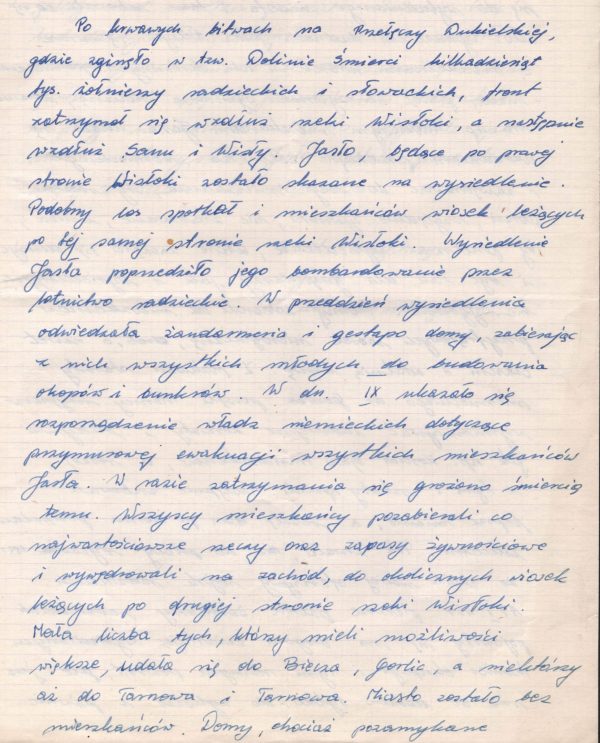 Po krwawych bitwach na Przełęczy Dukielskiej,
gdzie zginęło w tzw. Dolinie Śmierci kilkadziesiąt
tys. żołnierzy radzieckich i słowackich, front
zatrzymał się wzdłuż rzeki Wisłoki, a następnie
wzdłuż Sanu i Wisły. Jasło, będące po prawej
stronie Wisłoki zostało skazane na wysiedlenie.
Podobny los spotkał i mieszkańców wiosek leżących
po tej samej stronie rzeki Wisłoki. Wysiedlenie
Jasła poprzedziło jego bombardowanie przez
lotnictwo radzieckie. W przeddzień wysiedlenia
odwiedzała żandarmeria i gestapo domy, zabierając
z nich wszystkich młodych do budowania
okopów i bunkrów W dn. IX ukazało się
rozporządzenie władz niemieckich dotyczące
przymusowej ewakuacji wszystkich mieszkańców
Jasła. W razie zatrzymania się grożono śmiercią
temu. Wszyscy mieszkańcy pozabierali co
najwartościowsze rzeczy oraz zapasy żywnościowe
i wywędrowali na zachód, do okolicznych wiosek
leżących po drugiej stronie rzeki Wisłoki.
Mała liczba tych, którzy mieli możliwości
większe, udała się do Biecza, Gorlic, a niektórzy
aż do Tarnowa i Tarnowa. Miasto zostało bez
mieszkańców. Domy, chociaż pozamykane